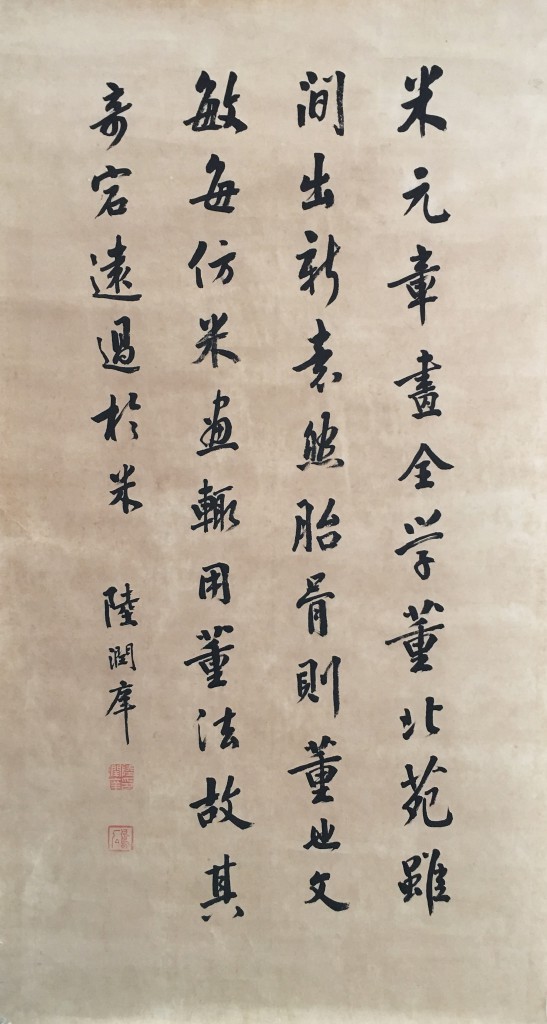 米元章畫全学董北苑雖
間出新意然胎骨則董也文
敏每仿米畫輙用董法故其
奇宕遠過於米 陸潤庠